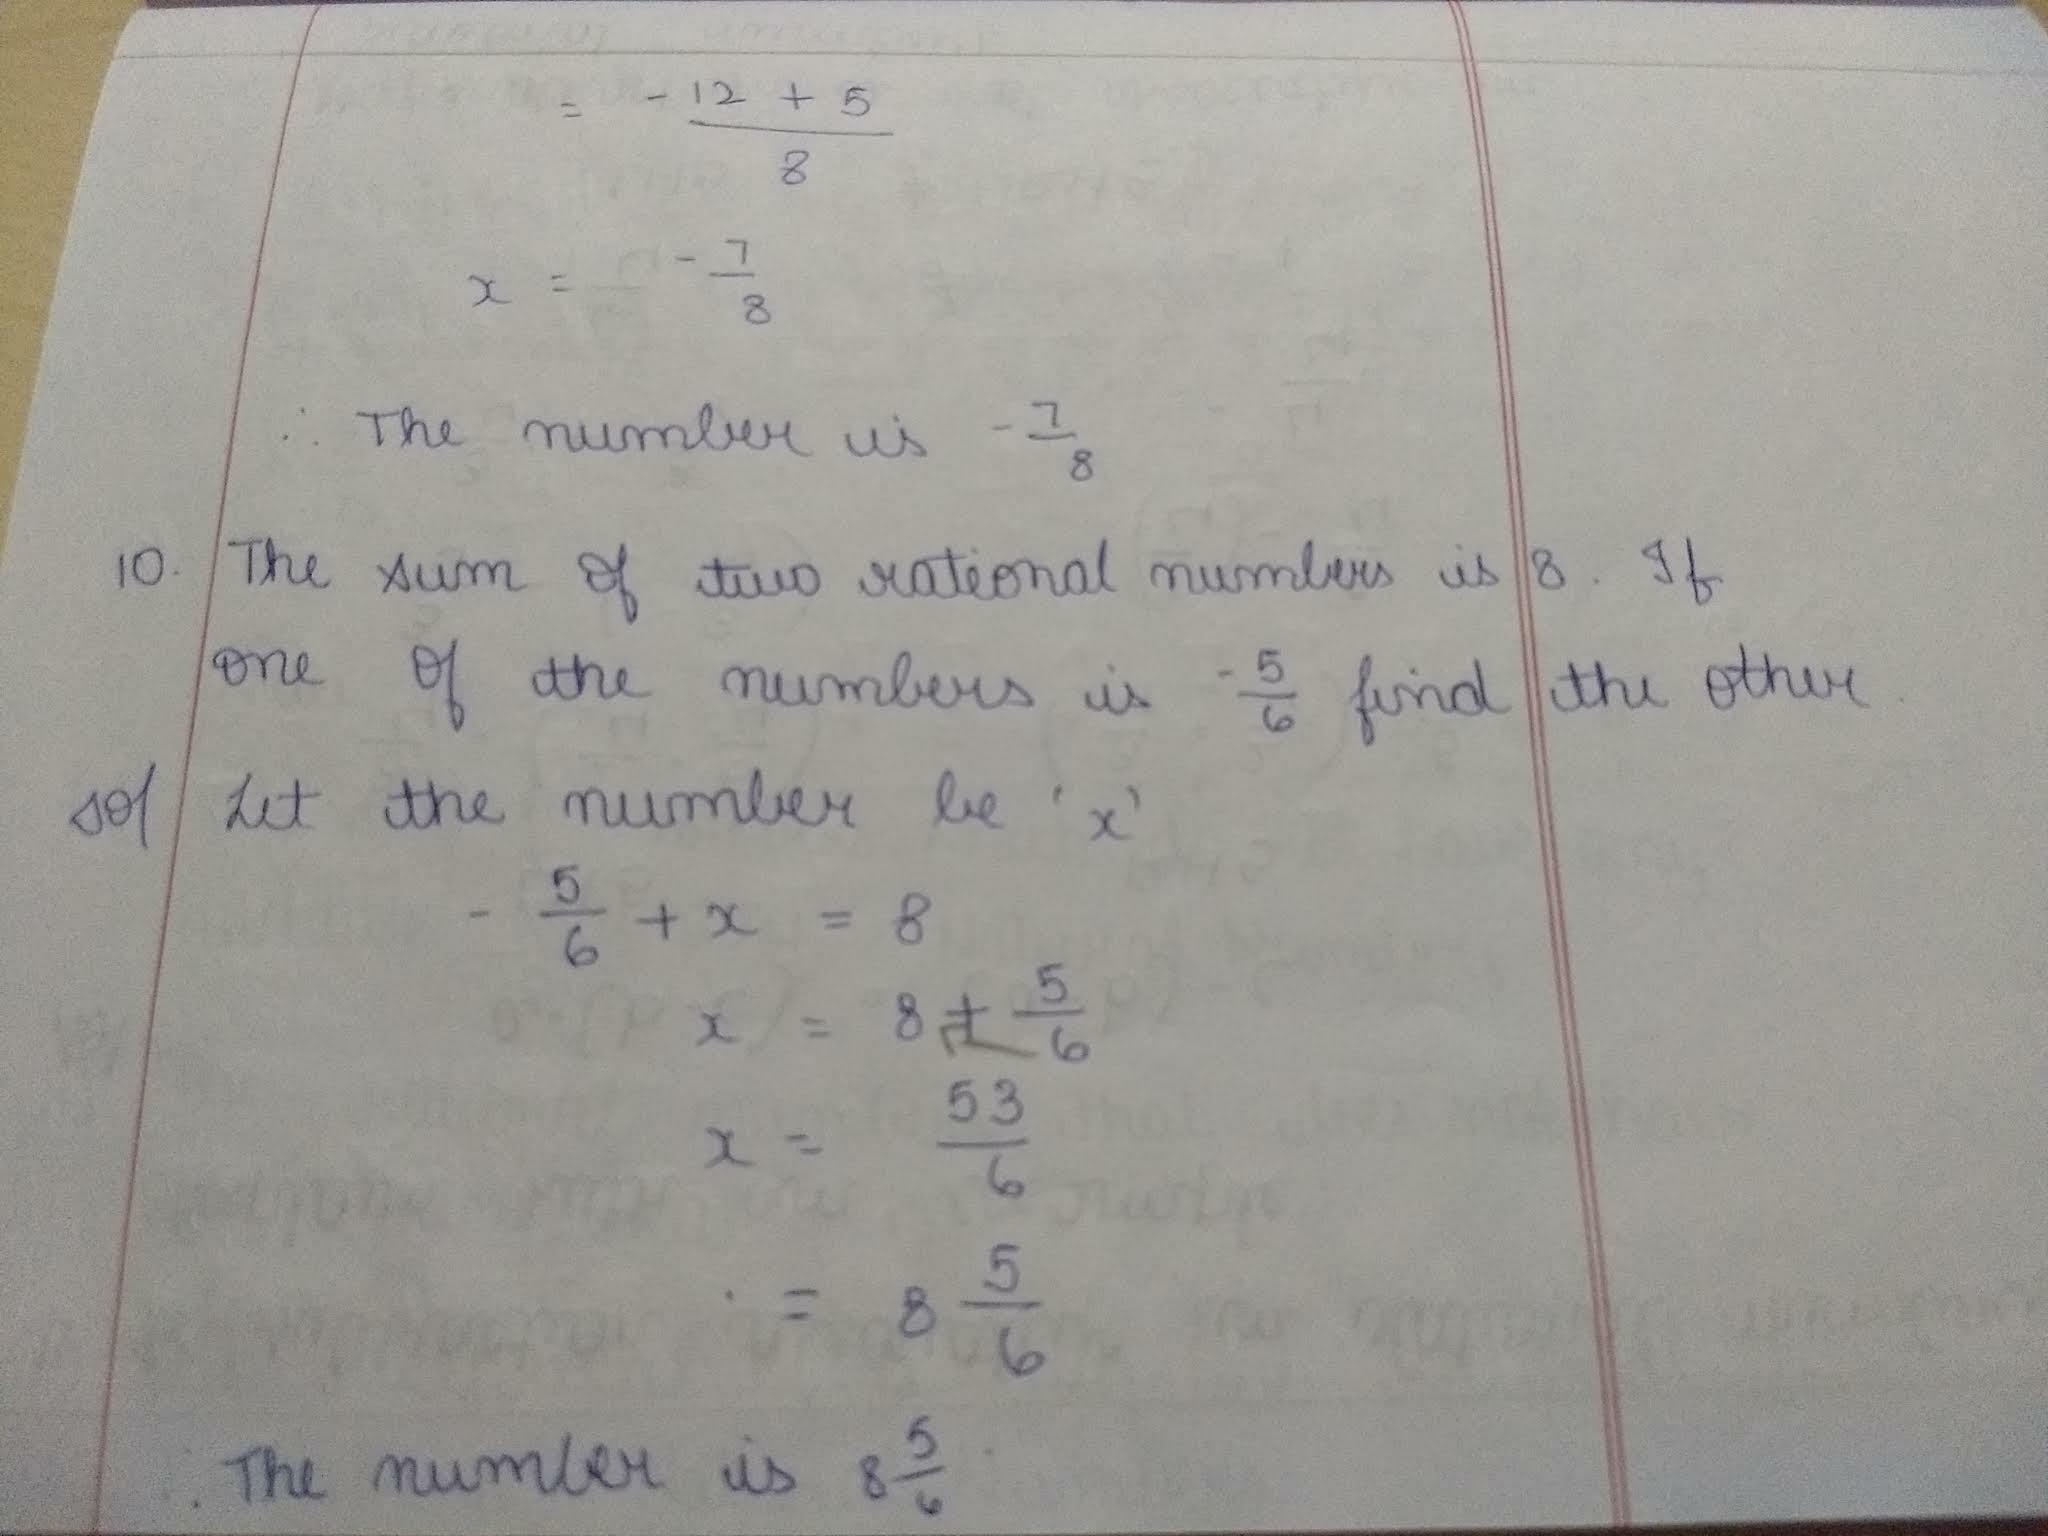 = -12 + 5 / 8
x = -7/8
∴ The number is -7/8
10. The sum of two rational numbers is 8. If
one of the numbers is -5/6 find the other.
sol Let the number be 'x'
- 5/6 + x = 8
x = 8 + 5/6
x = 53/6
= 8 5/6
∴ The number is 8 5/6